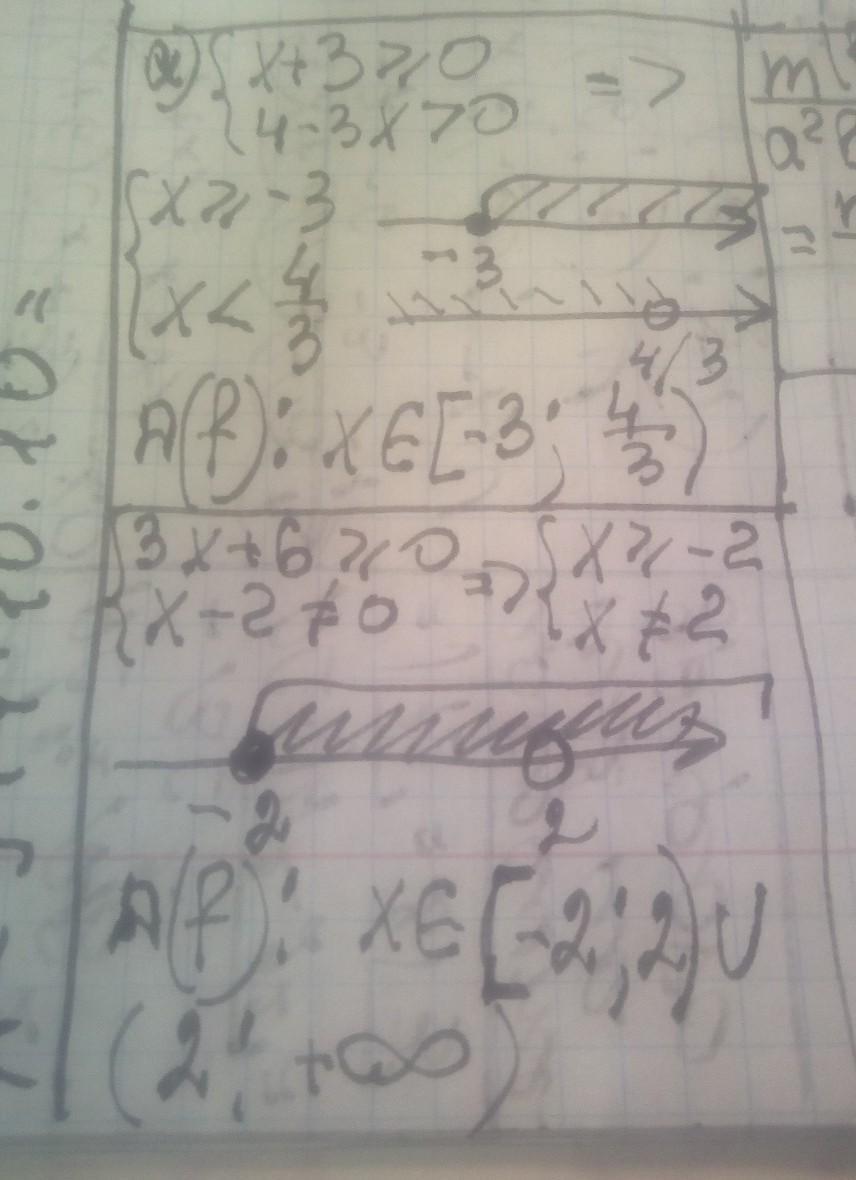 a) { x+3 ⩾ 0
4-3x > 0 =>
{ x ⩾ -3
-3
x < 4/3
4/3
D(f): x ∈ [-3; 4/3)
{ 3x+6 ⩾ 0 => { x ⩾ -2
x-2 ≠ 0 x ≠ 2
-2 2
D(f): x ∈ [-2; 2) ∪
(2; +∞)
m
a²
=